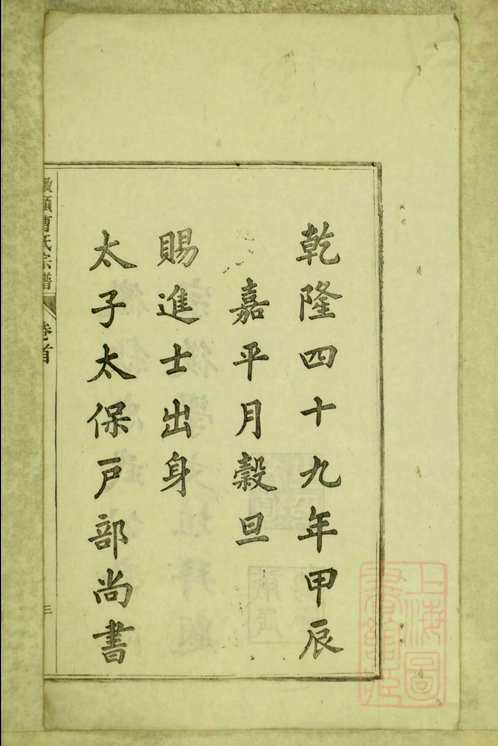 乾隆四十九年甲辰
嘉平月穀旦
賜進士出身
太子太保戸部尚書
曹氏宗譜
卷首
三
上海圖